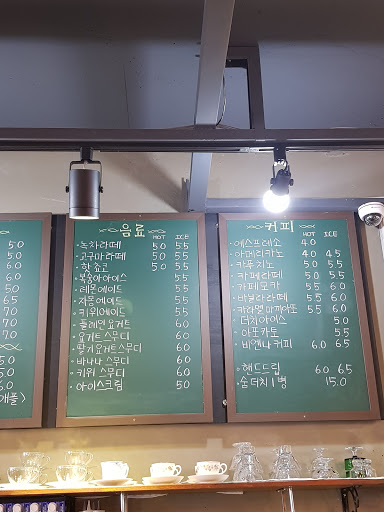 5.0
5.0
6.0
6.0
5.0
6.5
7.0
7.0
7.0
5.0
5.0
6.0
음료
HOT ICE
·녹차라떼 5.0 5.5
·고구마라떼 5.0 5.5
·핫쵸코 5.0 5.5
·복숭아아이스 5.5
·레몬에이드 5.5
·자몽에이드 5.5
·키위에이드 5.5
·플레인요거트 6.0
·요거트스무디 6.0
·딸기요거트스무디 6.0
·바나나 스무디 6.0
·키위 스무디 6.0
·아이스크림 5.0
커피
HOT ICE
·에스프레소 4.0
·아메리카노 4.0 4.5
·카푸치노 5.0 5.5
·카페라떼 5.0 5.5
·카페모카 5.5 6.0
·바닐라라떼 5.5 6.0
·카라멜마끼아또 5.5 6.0
·더치아이스 5.0
·아포카토 5.5
·비엔나 커피 6.0 6.5
·핸드드립 6.0 6.5
·손더치 1병 15.0